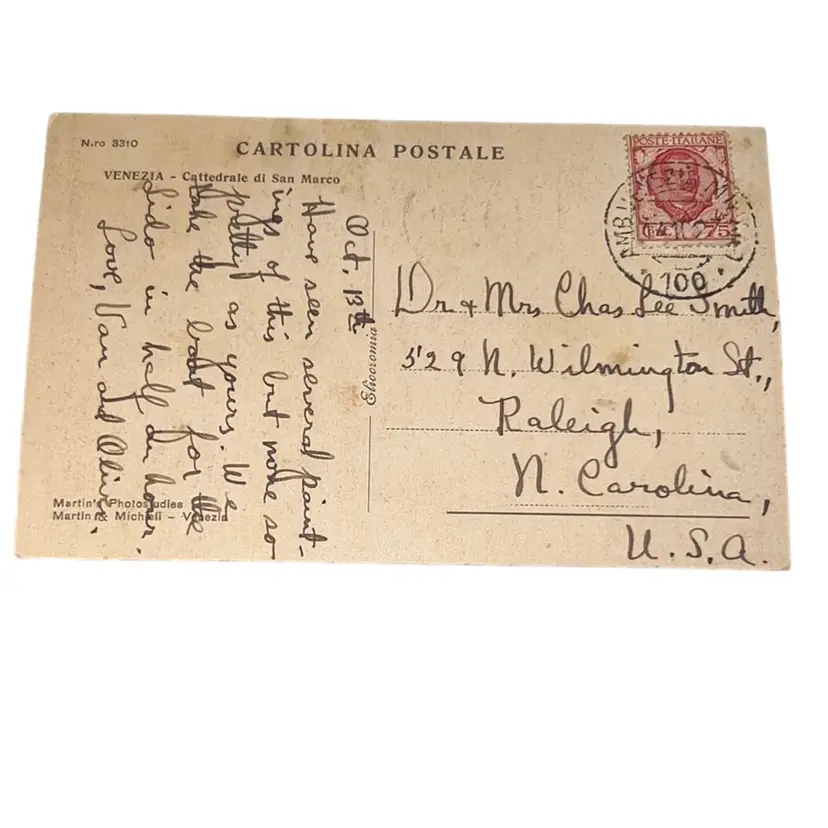 N.ro 3310
CARTOLINA POSTALE
VENEZIA - Cattedrale di San Marco
Oct. 13th
Have seen several paint-
ings of this but none so
pretty as yours. We
take the boat for the
Lido in half an hour.
Love, Van and Olive.
POSTE·ITALIANE
75
100
Dr & Mrs Chas Lee Smith,
529 N. Wilmington St.,
Raleigh,
N. Carolina,
U.S.A.
Martin's Photostudies
Martin & Micheli - Venezia